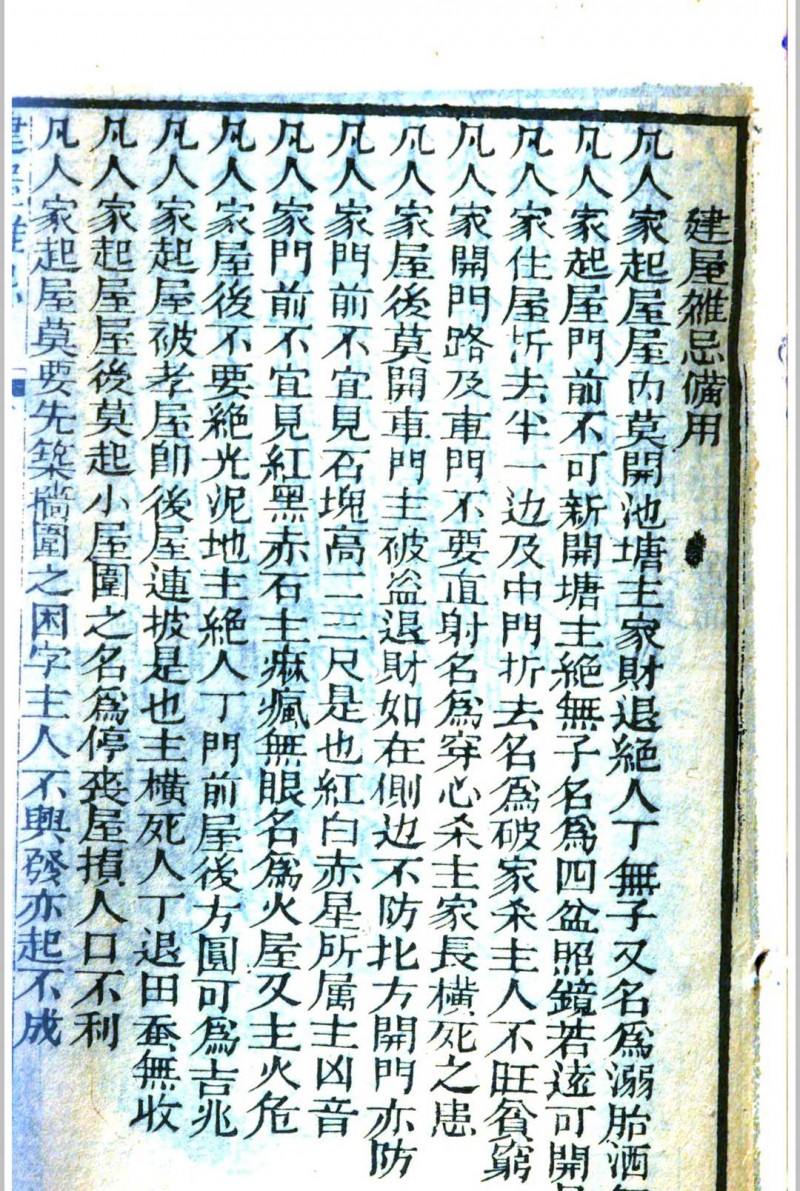 建屋雜忌備用
凡人家起屋屋內莫開池塘主家財退絕人丁無子又名為溺胎酒
凡人家起屋門前不可新開塘主絕無子名為四盆照鏡若遠可開
凡人家住屋折去半一边及中門折去名為破家杀主人不旺貧窮
凡人家開門路及車門不要直射名為穿心杀主家長橫死之患
凡人家屋後莫開車門主破盜退財如在側边不防北方開門亦防
凡人家門前不宜見石塊高二三尺是也紅白赤星所属主凶音
凡人家門前不宜見紅黑赤石主痲瘋無眼名為火屋又主火危
凡人家屋後不要絕光泥地主絕人丁門前屋後方圓可為吉兆
凡人家起屋破孝屋即後屋連披是也主橫死人丁退田蚕無收
凡人家起屋屋後莫起小屋圍之名為停喪屋損人口不利
凡人家起屋莫要先築墻圍之困字主人不興發亦起不成